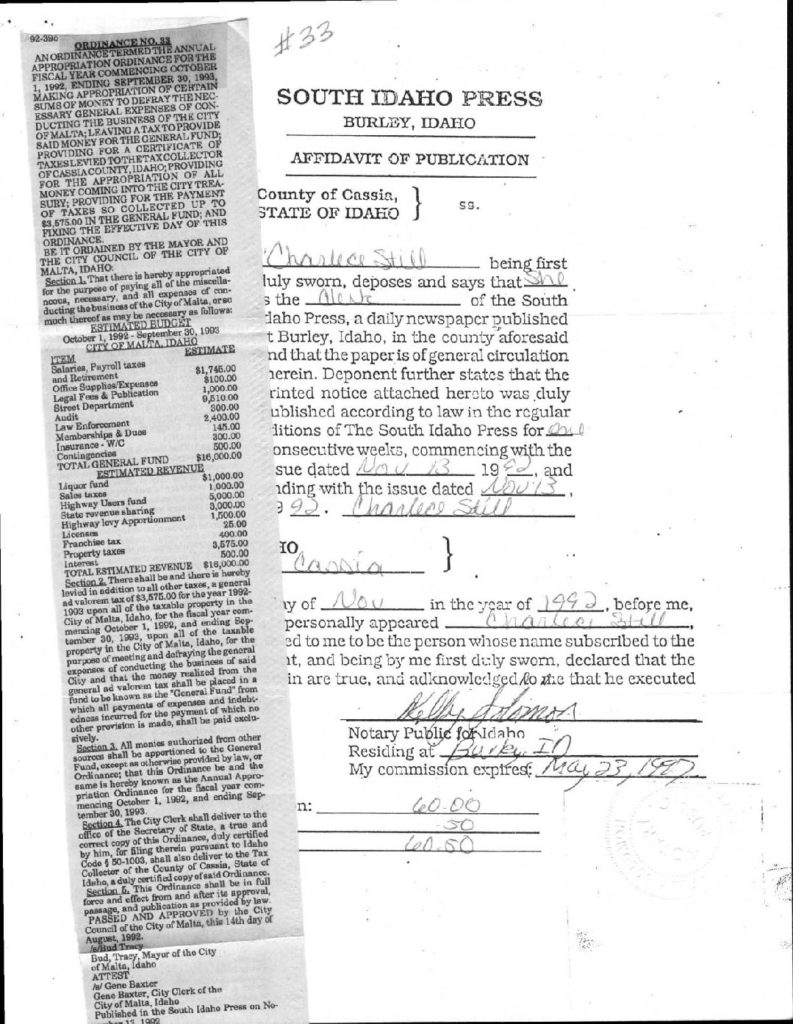 92-396
ORDINANCE NO. 33
AN ORDINANCE TERMED THE ANNUAL
APPROPRIATION ORDINANCE FOR THE
FISCAL YEAR COMMENCING OCTOBER
1, 1992, ENDING SEPTEMBER 30, 1993,
MAKING APPROPRIATION OF CERTAIN
SUMS OF MONEY TO DEFRAY THE NEC-
ESSARY GENERAL EXPENSES OF CON-
DUCTING THE BUSINESS OF THE CITY
OF MALTA; LEAVING A TAX TO PROVIDE
SAID MONEY FOR THE GENERAL FUND;
PROVIDING FOR A CERTIFICATE OF
TAXES LEVIED TO THE TAX COLLECTOR
OF CASSIA COUNTY, IDAHO; PROVIDING
FOR THE APPROPRIATION OF ALL
MONEY COMING INTO THE CITY TREA-
SURY; PROVIDING FOR THE PAYMENT
OF TAXES SO COLLECTED UP TO
$3,575.00 IN THE GENERAL FUND; AND
FIXING THE EFFECTIVE DAY OF THIS
ORDINANCE.
BE IT ORDAINED BY THE MAYOR AND
THE CITY COUNCIL OF THE CITY OF
MALTA, IDAHO:
Section 1. That there is hereby appropriated
for the purpose of paying all of the miscella-
neous, necessary, and all expenses of con-
ducting the business of the City of Malta, or so
much thereof as may be necessary as follows:
ESTIMATED BUDGET
October 1, 1992 - September 30, 1993
CITY OF MALTA, IDAHO
ITEM ESTIMATE
Salaries, Payroll taxes
and Retirement $1,745.00
Office Supplies/Expenses $100.00
Legal Fees & Publication 1,000.00
Street Department 9,510.00
Audit 300.00
Law Enforcement 2,400.00
Memberships & Dues 145.00
Insurance - W/C 300.00
Contingencies 500.00
TOTAL GENERAL FUND $16,000.00
ESTIMATED REVENUE
Liquor fund $1,000.00
Sales taxes 1,000.00
Highway Users fund 5,000.00
State revenue sharing 3,000.00
Highway levy Apportionment 1,500.00
Licenses 25.00
Franchise tax 400.00
Property taxes 3,575.00
Interest 500.00
TOTAL ESTIMATED REVENUE $16,000.00
Section 2. There shall be and there is hereby
levied in addition to all other taxes, a general
ad valorem tax of $3,575.00 for the year 1992-
1993 upon all of the taxable property in the
City of Malta, Idaho, for the fiscal year com-
mencing October 1, 1992, and ending Sep-
tember 30, 1993, upon all of the taxable
property in the City of Malta, Idaho, for the
purpose of meeting and defraying the general
expenses of conducting the business of said
City and that the money realized from the
general ad valorem tax shall be placed in a
fund to be known as the "General Fund" from
which all payments of expenses and indebt-
edness incurred for the payment of which no
other provision is made, shall be paid exclu-
sively.
Section 3. All monies authorized from other
sources shall be apportioned to the General
Fund, except as otherwise provided by law, or
Ordinance; that this Ordinance be and the
same is hereby known as the Annual Appro-
priation Ordinance for the fiscal year com-
mencing October 1, 1992, and ending Sep-
tember 30, 1993.
Section 4. The City Clerk shall deliver to the
office of the Secretary of State, a true and
correct copy of this Ordinance, duly certified
by him, for filing therein pursuant to Idaho
Code § 50-1003, shall also deliver to the Tax
Collector of the County of Cassia, State of
Idaho, a duly certified copy of said Ordinance.
Section 5. This Ordinance shall be in full
force and effect from and after its approval,
passage, and publication as provided by law.
PASSED AND APPROVED by the City
Council of the City of Malta, this 14th day of
August, 1992.
/s/Bud Tracy
Bud, Tracy, Mayor of the City
of Malta, Idaho
ATTEST
/s/ Gene Baxter
Gene Baxter, City Clerk of the
City of Malta, Idaho
Published in the South Idaho Press on No-
#33
SOUTH IDAHO PRESS
BURLEY, IDAHO
AFFIDAVIT OF PUBLICATION
County of Cassia, } ss.
STATE OF IDAHO
Charlece Still being first
duly sworn, deposes and says that she
s the Clerk of the South
daho Press, a daily newspaper published
t Burley, Idaho, in the county aforesaid
nd that the paper is of general circulation
herein. Deponent further states that the
rinted notice attached hereto was duly
ublished according to law in the regular
ditions of The South Idaho Press for one
onsecutive weeks, commencing with the
sue dated Nov 13 1992, and
nding with the issue dated Nov 13,
92. Charlece Still
HO }
Cassia
ay of Nov in the year of 1992, before me,
personally appeared Charlece Still,
ed to me to be the person whose name subscribed to the
nt, and being by me first duly sworn, declared that the
in are true, and adknowledged to me that he executed
Kelly Solomon
Notary Public for Idaho
Residing at Burley, ID
My commission expires: May 23, 1997
n: 60.00
.50
60.50